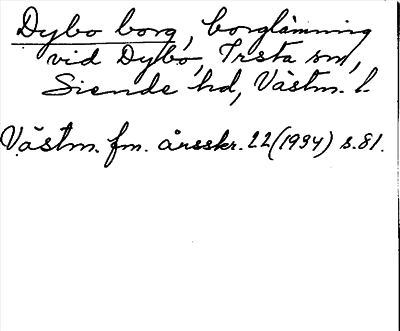 Dybo borg, borglämning
vid Dybo, Irsta sn,
Siende hd, Västm. l.
Västm. fm. årsskr. 22 (1934) s. 81.